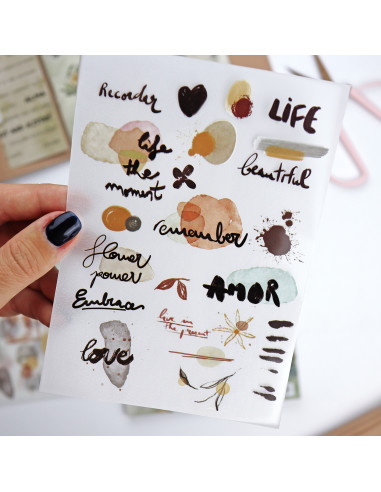 Recorder
LiFE
life
the
moment
beautiful
remember
flower
power
Embrace
AMOR
live in
the present
love